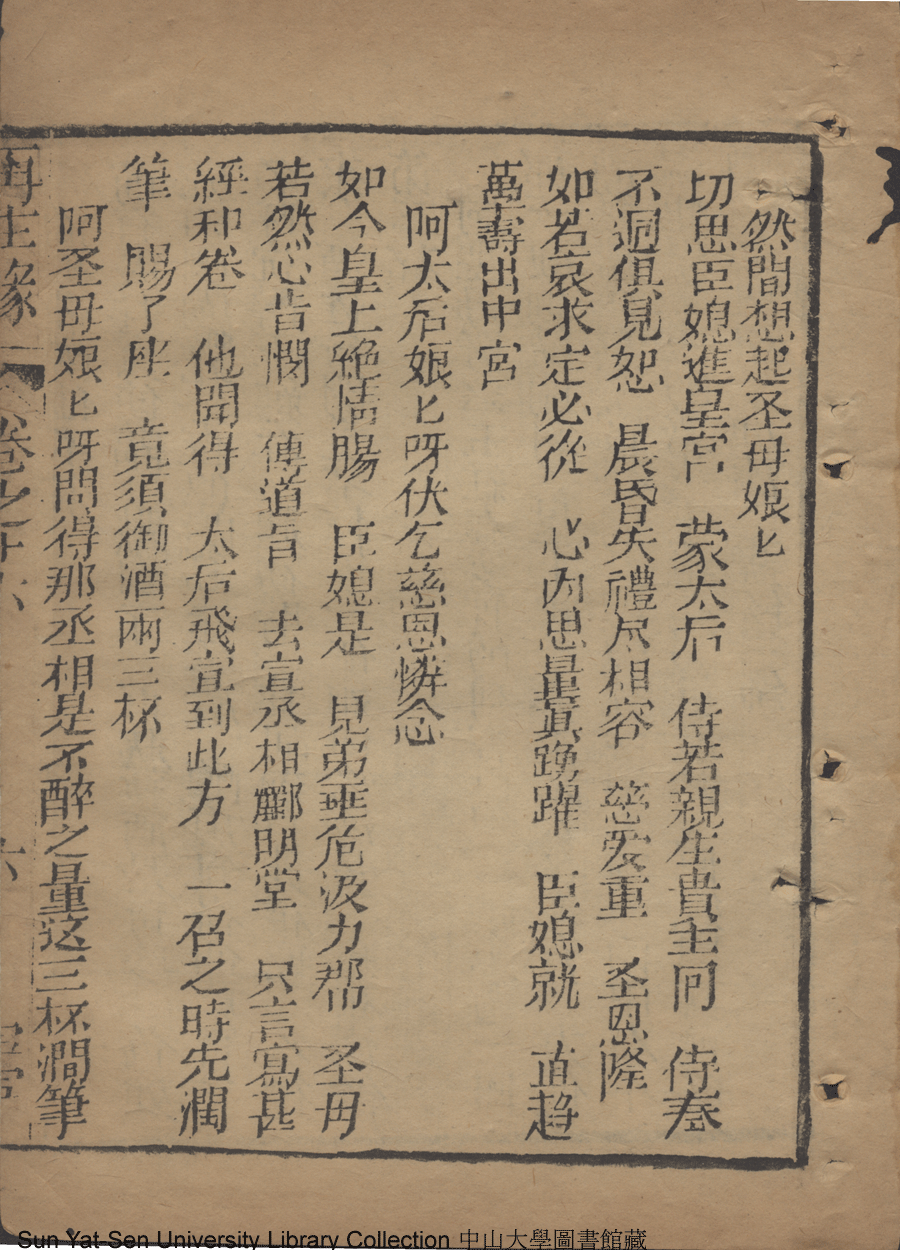 然間想起圣母娘匕
切思臣媳進皇宮　蒙太后　侍若親生貴主同　侍奉
不週俱見恕　晨昏失禮尽相容　慈爱重　圣恩隆
如若哀求定必從　心內思量真踴躍　臣媳就　直趋
萬壽出中宮
呵太后娘匕呀伏乞慈恩憐念
如今皇上絶情腸　臣媳是　見弟垂危汲力帮　圣母
若然心肯憫　傳道旨　去宣丞相酈明堂　只言寫甚
經和卷　他聞得　太后飛宣到此方　一召之時先潤
筆　賜了座　竟須御酒兩三杯
呵圣母娘匕呀問得那丞相是不醉之量这三杯潤筆
再生緣　卷之十六　六
Sun Yat-Sen University Library Collection 中山大學圖書館藏